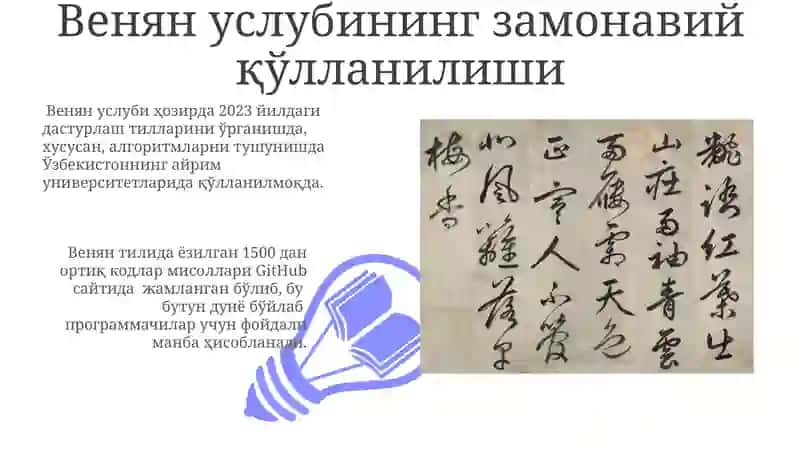 Венян услубининг замонавий
қўлланилиши
Венян услуби ҳозирда 2023 йилдаги
дастурлаш тилларини ўрганишда,
хусусан, алгоритмларни тушунишда
Ўзбекистоннинг айрим
университетларида қўлланилмоқда.
Венян тилида ёзилган 1500 дан
ортиқ кодлар мисоллари GitHub
сайтида жамланган бўлиб, бу
бутун дунё бўйлаб
программачилар учун фойдали
манба ҳисобланади.
紅葉出
山莊雨袖青雲
雨 天色
正 人不
風籬落
梅香